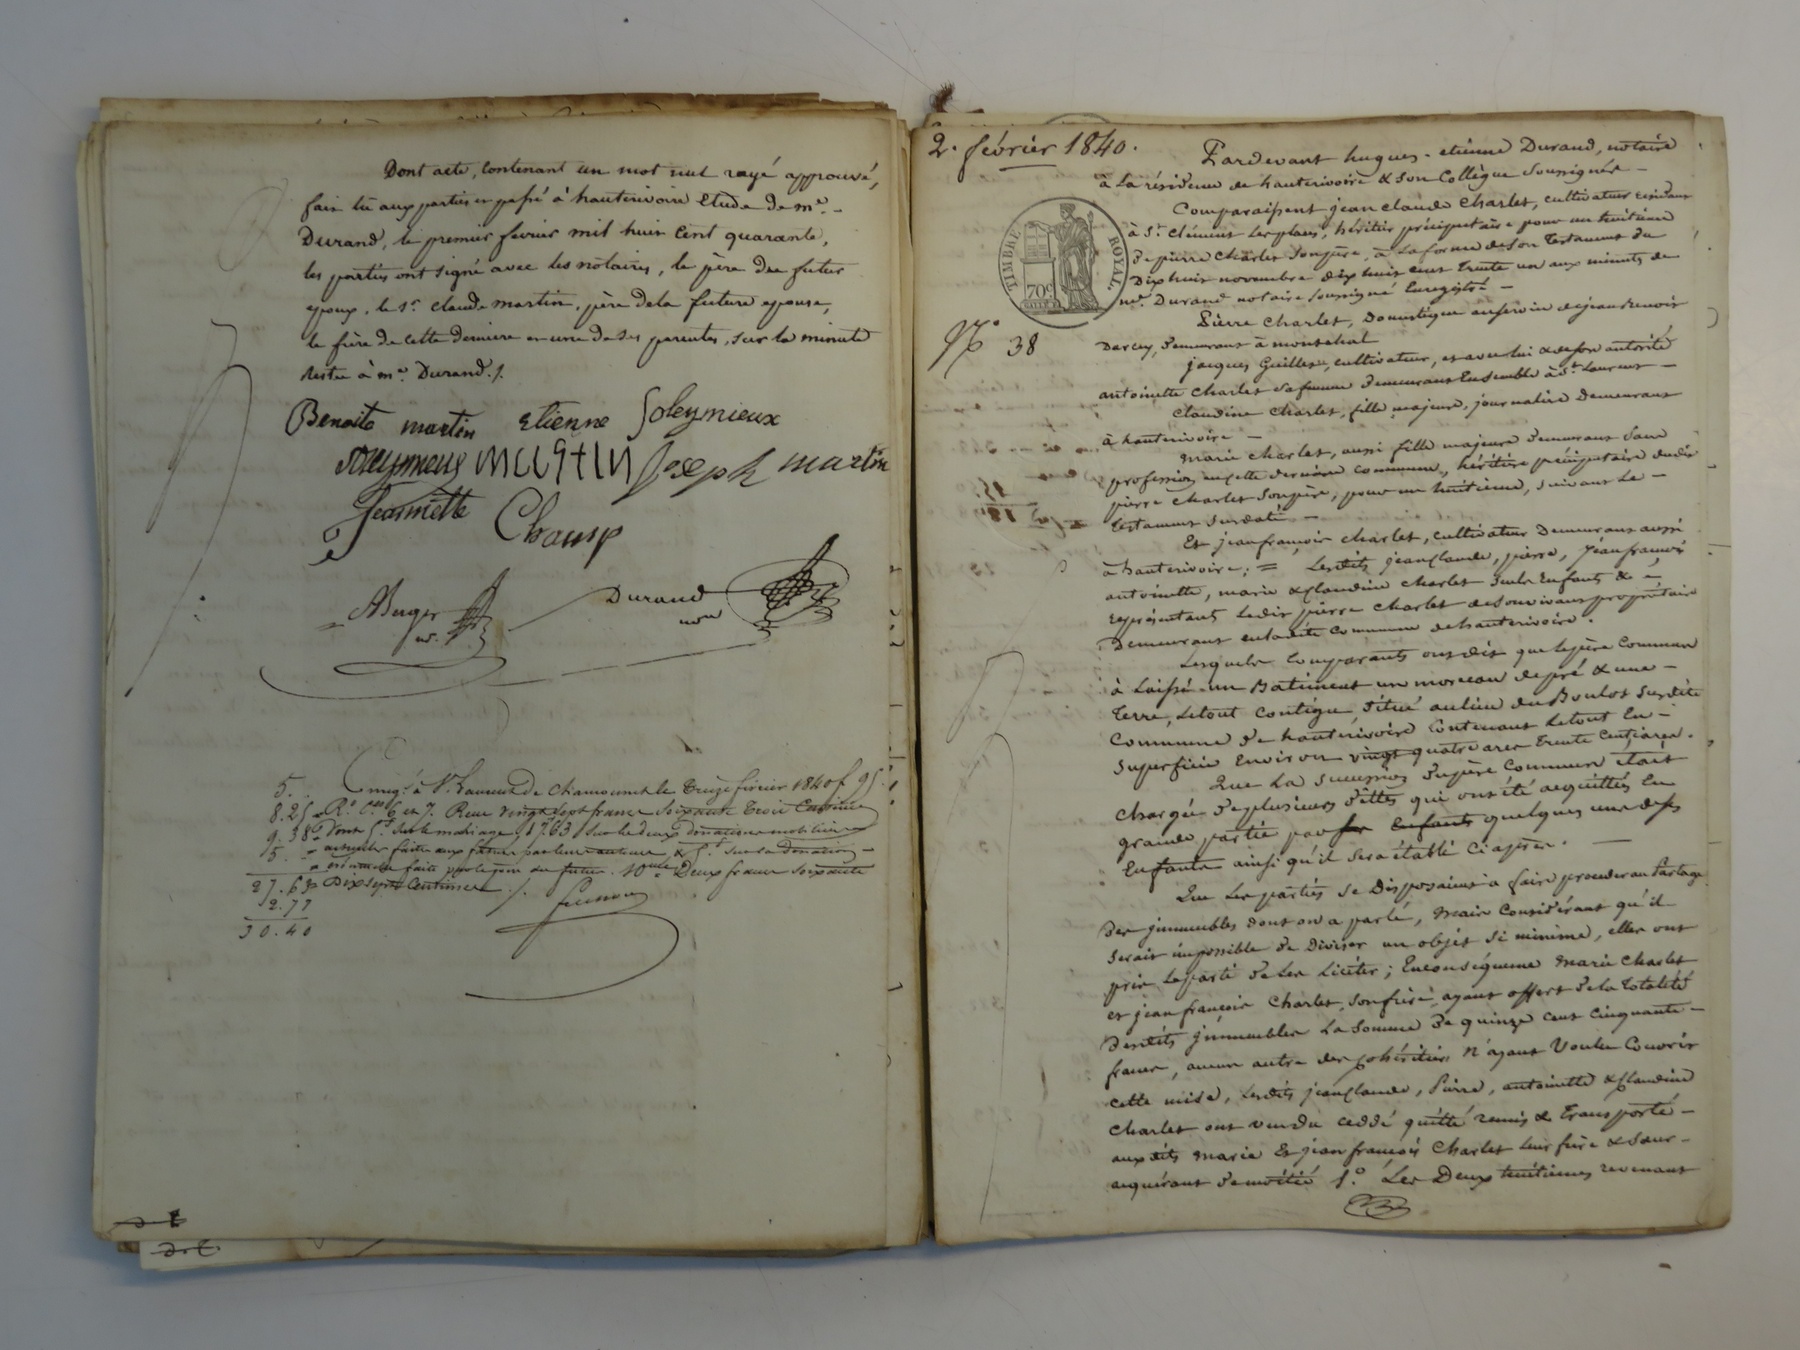 Dont acte, contenant un mot nul rayé approuvé,
fait lu aux parties et passé à hauterivoire Etude de me.
Durand, le premier février mil huit cent quarante,
les parties ont signé avec les notaires, le père du futur
epoux, le sr. claude martin, père de la future epouse,
le frère de cette dernière et une de ses parentes, sur la minute
restée à me. Durand ./.
Benoite martin etienne Soleymieux
Soleymieux martin Joseph martin
Jeannette
Chaup
Durand
nore
Enregé. à St. Laurent de Chamousset le treize février 1840 fo 95
Ro. Cses 6 et 7. Reçu vingt sept francs soixante trois Centimes
Dont 5f sur le mariage, 17.63 sur les deux donations mobilières
faites aux futurs par leurs & 5f sur la donation
faite par le père du futur. 10me Deux francs soixante
Dix sept Centimes ./.
5.
8.25
9.38
5.
27.63
2.77
30.40
2. février 1840.
No 38
TIMBRE ROYAL
70c
Pardevant hugues-etienne Durand, notaire
à La résidence de hauterivoire & son Collègue Soussignés
Comparaissent jean claude Charlet, cultivateur residant
à St. Clément les places, héritier précipuitaire pour un huitième
De pierre Charlet Son père, à la forme de son Testament du
Dix huit novembre dix huit cent trente un aux minutes de
me. Durand notaire soussigné Enregistré
Pierre Charlet, Domestique au service de jean Renoir
Darcy, demeurant à montchal
jacques Guillet, cultivateur, et avec lui & de son autorité
antoinette Charlet sa femme demeurant Ensemble à St. Laurent
Claudine Charlet, fille majeure, journalière Demeurant
à hauterivoire
Marie Charlet, aussi fille majeure demeurant Sans
profession en cette dernière commune, héritière précipuitaire dudit
pierre Charlet Son père, pour un huitième, suivant Le
Testament Susdaté
Et jean françois Charlet, cultivateur Demeurant aussi
à hauterivoire; = Lesdits jean Claude, pierre, jean françois
antoinette, marie & Claudine Charlet Seuls Enfants &
représentants Ledit pierre Charlet de Son vivant propriétaire
Demeurant en ladite Commune de hauterivoire.
Lesquels Comparants ont dit que le père Commun
à Laissé un Batiment un morceau de pré & une
Terre, Le tout Contigu, Situé au lieu du Boulot Susdite
Commune de hauterivoire Contenant Le tout En
Superficie Environ vingt quatre ares trente Centiares.
Que La Succession du père Commun était
Chargée de plusieurs dettes qui ont été acquittées En
grande partie par les Enfants quelques uns des
Enfants ainsi qu'il Sera établi Ci après.
Que Les parties Se Disposaient à faire procéder au Partage
Des jmmeubles dont on a parlé, mais Considérant qu'il
Serait impossible de Diviser un objet Si minime, elles ont
pris Le parti de Les Liciter; En conséquence marie Charlet
et jean françois Charlet, Son frère, ayant offert de la totalité
Desdits jmmeubles La Somme de quinze cent cinquante
francs, aucun autre des Cohéritiers N'ayant Voulu Couvrir
Cette mise, Lesdits jean Claude, Pierre, antoinette & Claudine
Charlet ont vendu cédé quitté remis & transporté
auxdits marie Et jean françois Charlet leur frère & Sœur
acquérant de moitié 1o. Les Deux huitièmes revenant